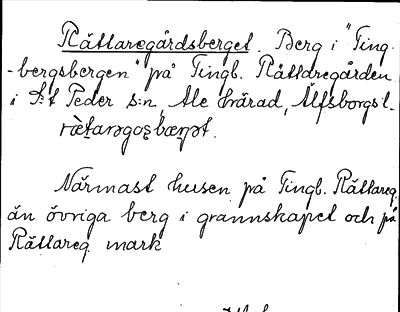 Rättaregårdsberget. Berg i "Ting-
-bergsbergen" på Tingb. Rättaregården
i S:t Peder s:n, Ale härad, Älfsborgs l.
Närmast husen på Tingb. Rättareg.
än övriga berg i grannskapet och på
Rättareg. mark